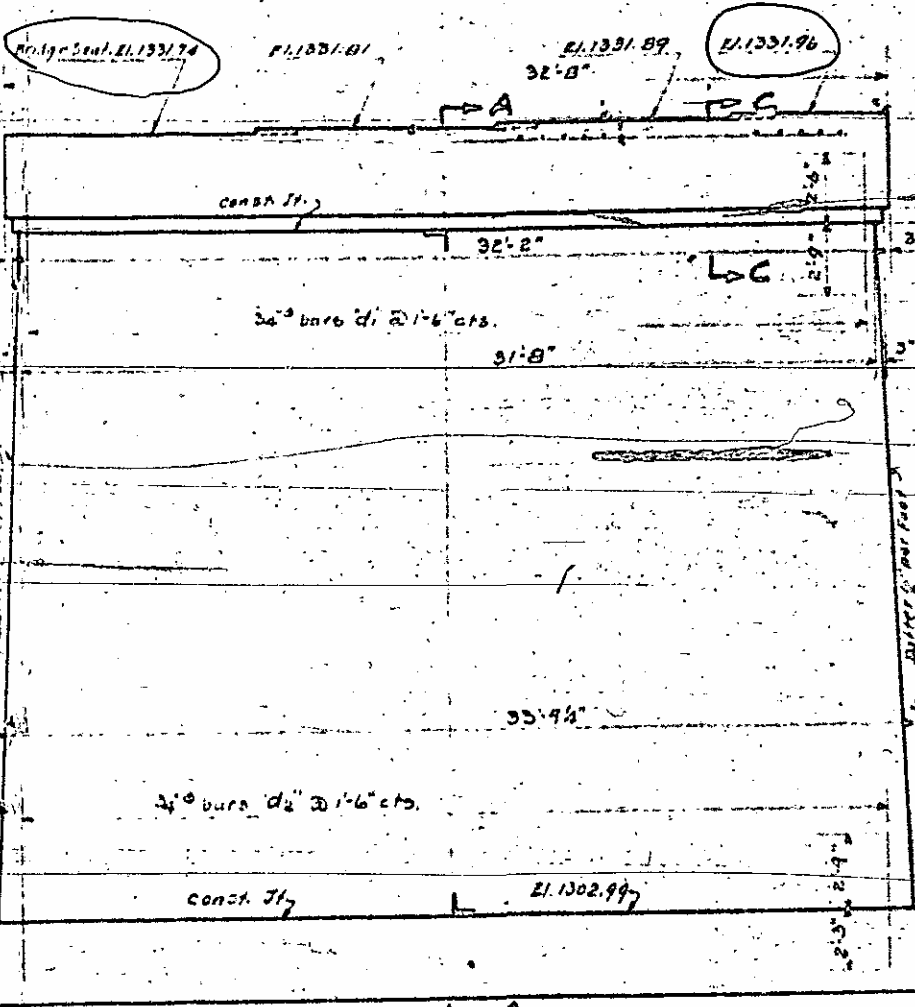 Bridge Seat El.1331.74
El.1331.81
El.1331.89
El.1331.96
32'-8"
A
C
const. Jt.
2'-6"
32'-2"
3
C
2'-9"
3/4"ᶲ bars 'd1' @ 1'-6" cts.
31'-8"
3"
Batter ½" per Foot
33'-9½"
3/4"ᶲ bars 'd2' @ 1'-6" cts.
2'-9"
const. Jt.
El.1302.99
2'-3"